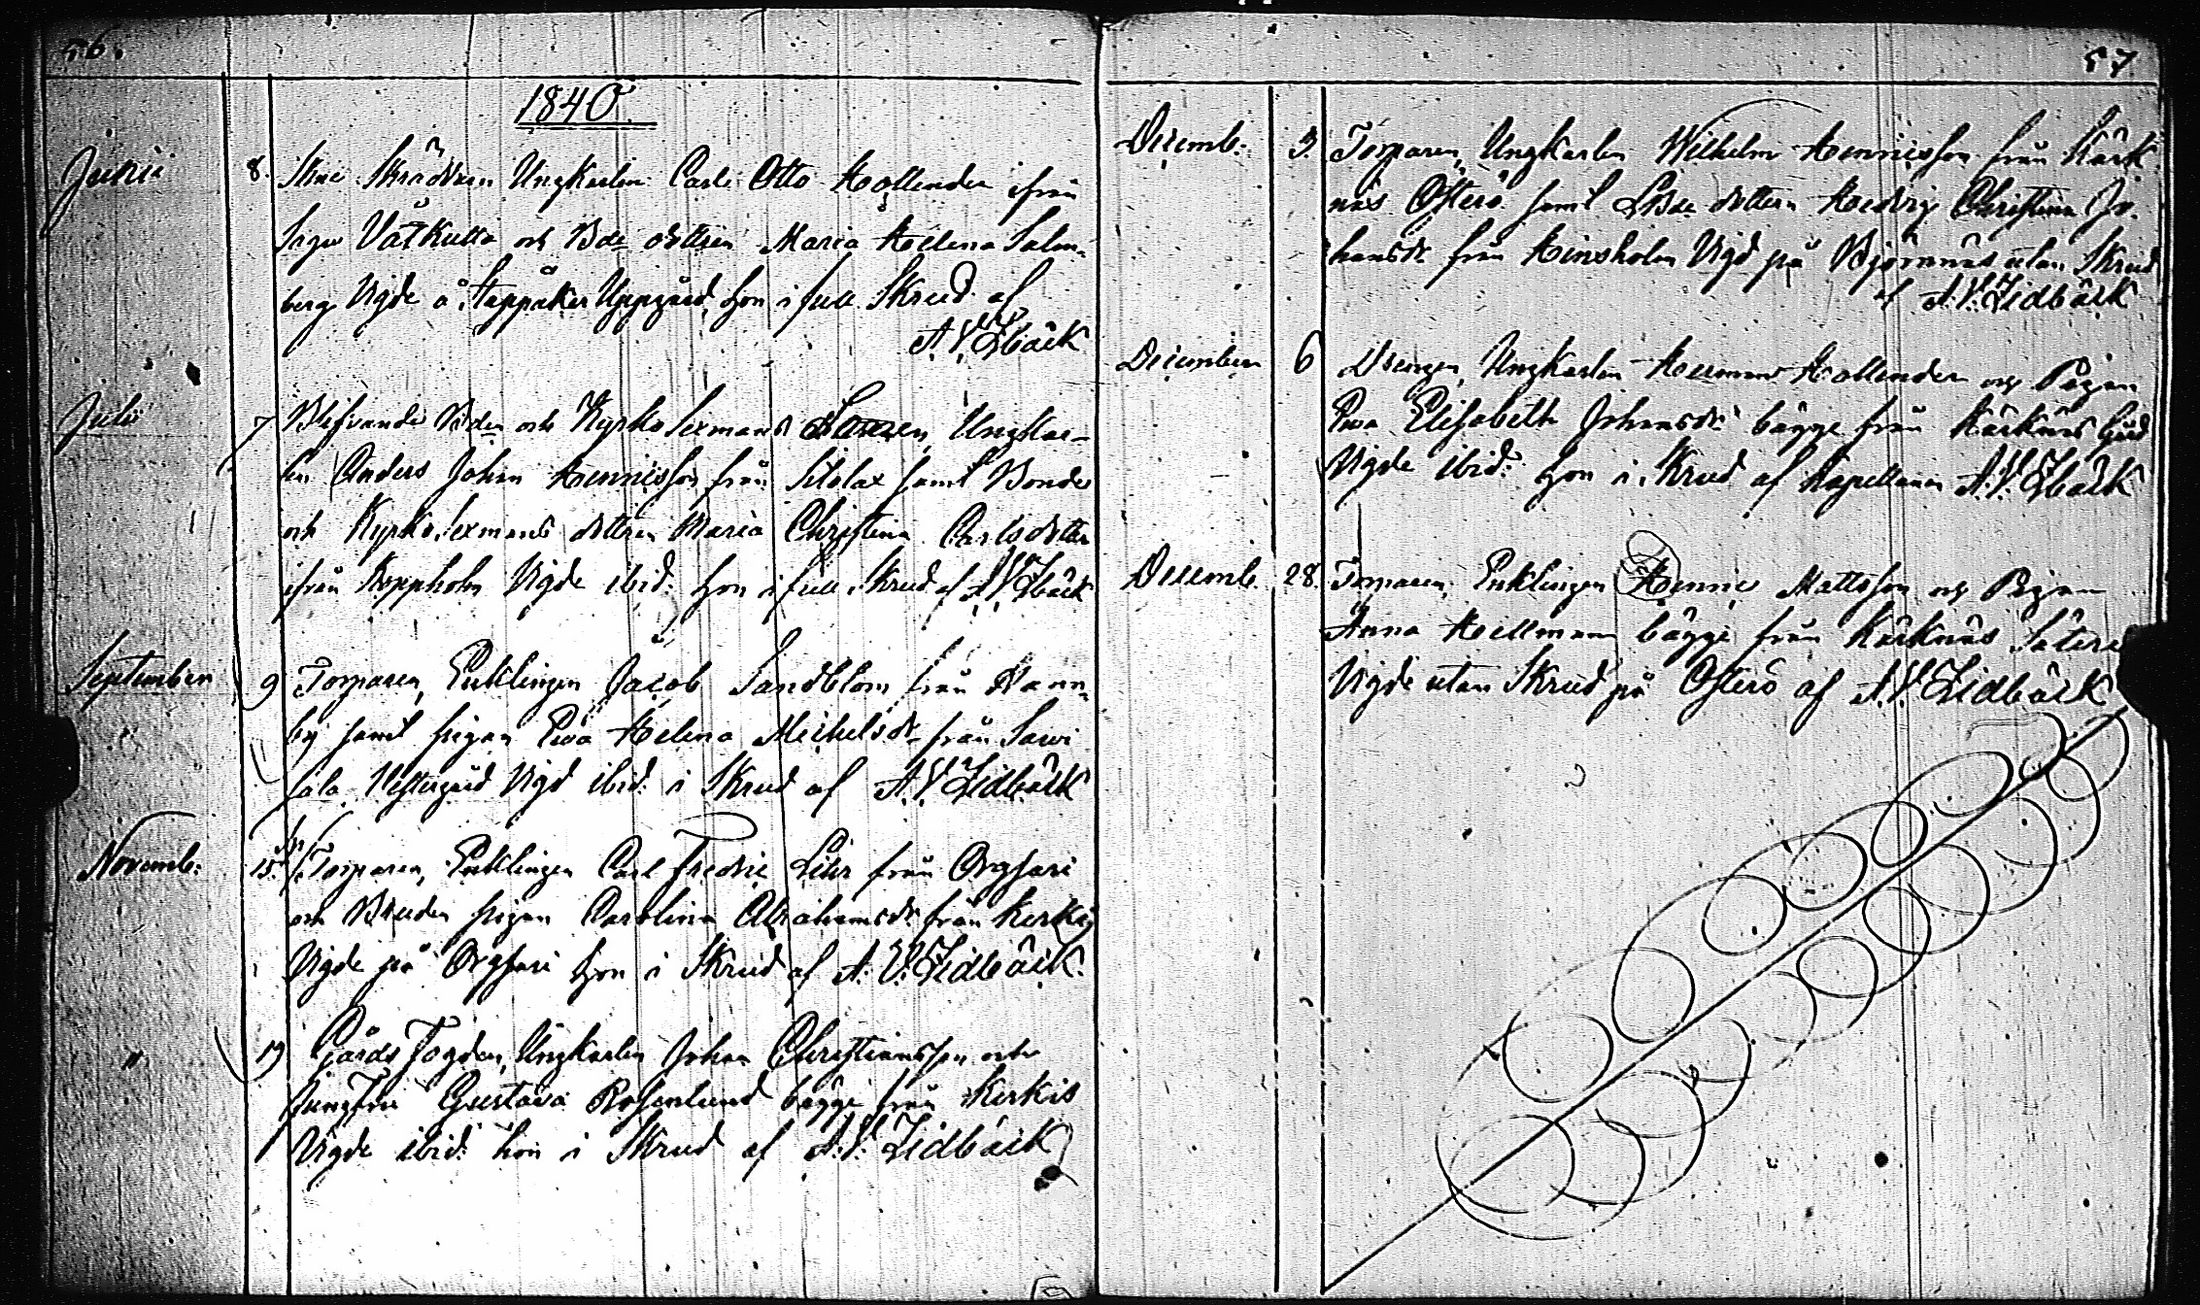 56.
1840.
Junii 8. Skräddaren Ungkarlen Carl Otto Hollender ifrån
Vätkulla och Bde dottren Maria Helena Salm-
berg Vigde å Stappåker Uppgård, hon i full Skrud af
A.V. Lbäck
Julii 7 Blifvande Bden och Kyrko Sexmans Sonen Ungkar-
len Anders Johan Hennisson från Silolax samt Bonde
och Kyrko Sexmans dottren Maria Christina Carlsdotter
ifrån Koppholm Vigde ibid: hon i full Skrud af A.V. Lbäck
September 9 Torparen, Enklingen Jacob Sandblom från Nann-
by samt pigan Eva Helena Michelsdr från Sawi
jala Westergård Vigd ibid: i Skrud af A.V. Lidbäck
Novemb: 15. Torparen, Enklingen Carl Fredric Lihr från Orgsari
och Bruden pigan Carolina Abrahamsdr från Kerkis
Vigde på Orgsari hon i Skrud af A.V. Lidbäck.
" 19 Gårds Fogden, Ungkarlen Johan Christiansson och
Jungfru Gustava Rosenlund bägge från Kerkis
Vigde ibid: hon i Skrud af A.V. Lidbäck
57
Decemb: 3. Torparen, Ungkarlen Wilhelm Hennisson från Kärk
näs Österö samt dottern Hedvig Christina Jo-
hansdr från Hinsholm Vigd på Björnnäs utan Skrud
af A.V. Lidbäck
December 6 Drengen, Ungkarlen Herman Hollender och Pigan
Eva Elisabeth Johansdr bägge från Kärknäs Gård
Vigde ibid: hon i Skrud af Kapellanen A.V. Lbäck
Decemb. 28. Torparen, Enklingen Hennic Mattsson och Pigan
Anna Hellman bägge från Kärknäs Säteri
Vigde utan Skrud på Österö af A.V. Lidbäck